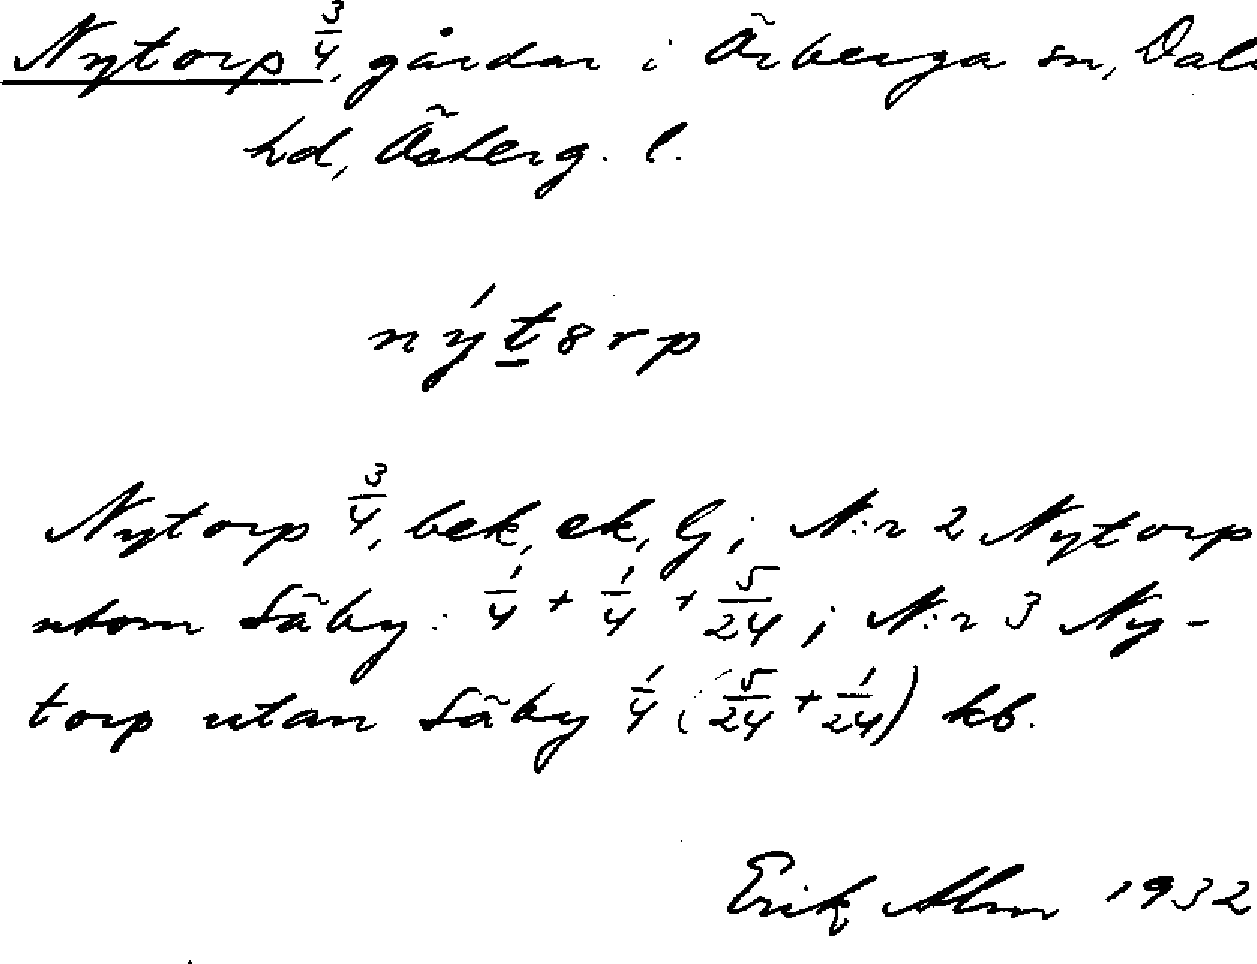 Nytorp 3/4, gårdar i Örberga sn, Dals
hd, Österg. l.
nýt8rp
Nytorp 3/4, bek, ek, Gj; N:r 2 Nytorp
utom Säby: 1/4 + 1/4 + 5/24; N:r 3 Ny-
torp utan Säby 1/4 (5/24 + 1/24) kb.
Erik Alm 1932